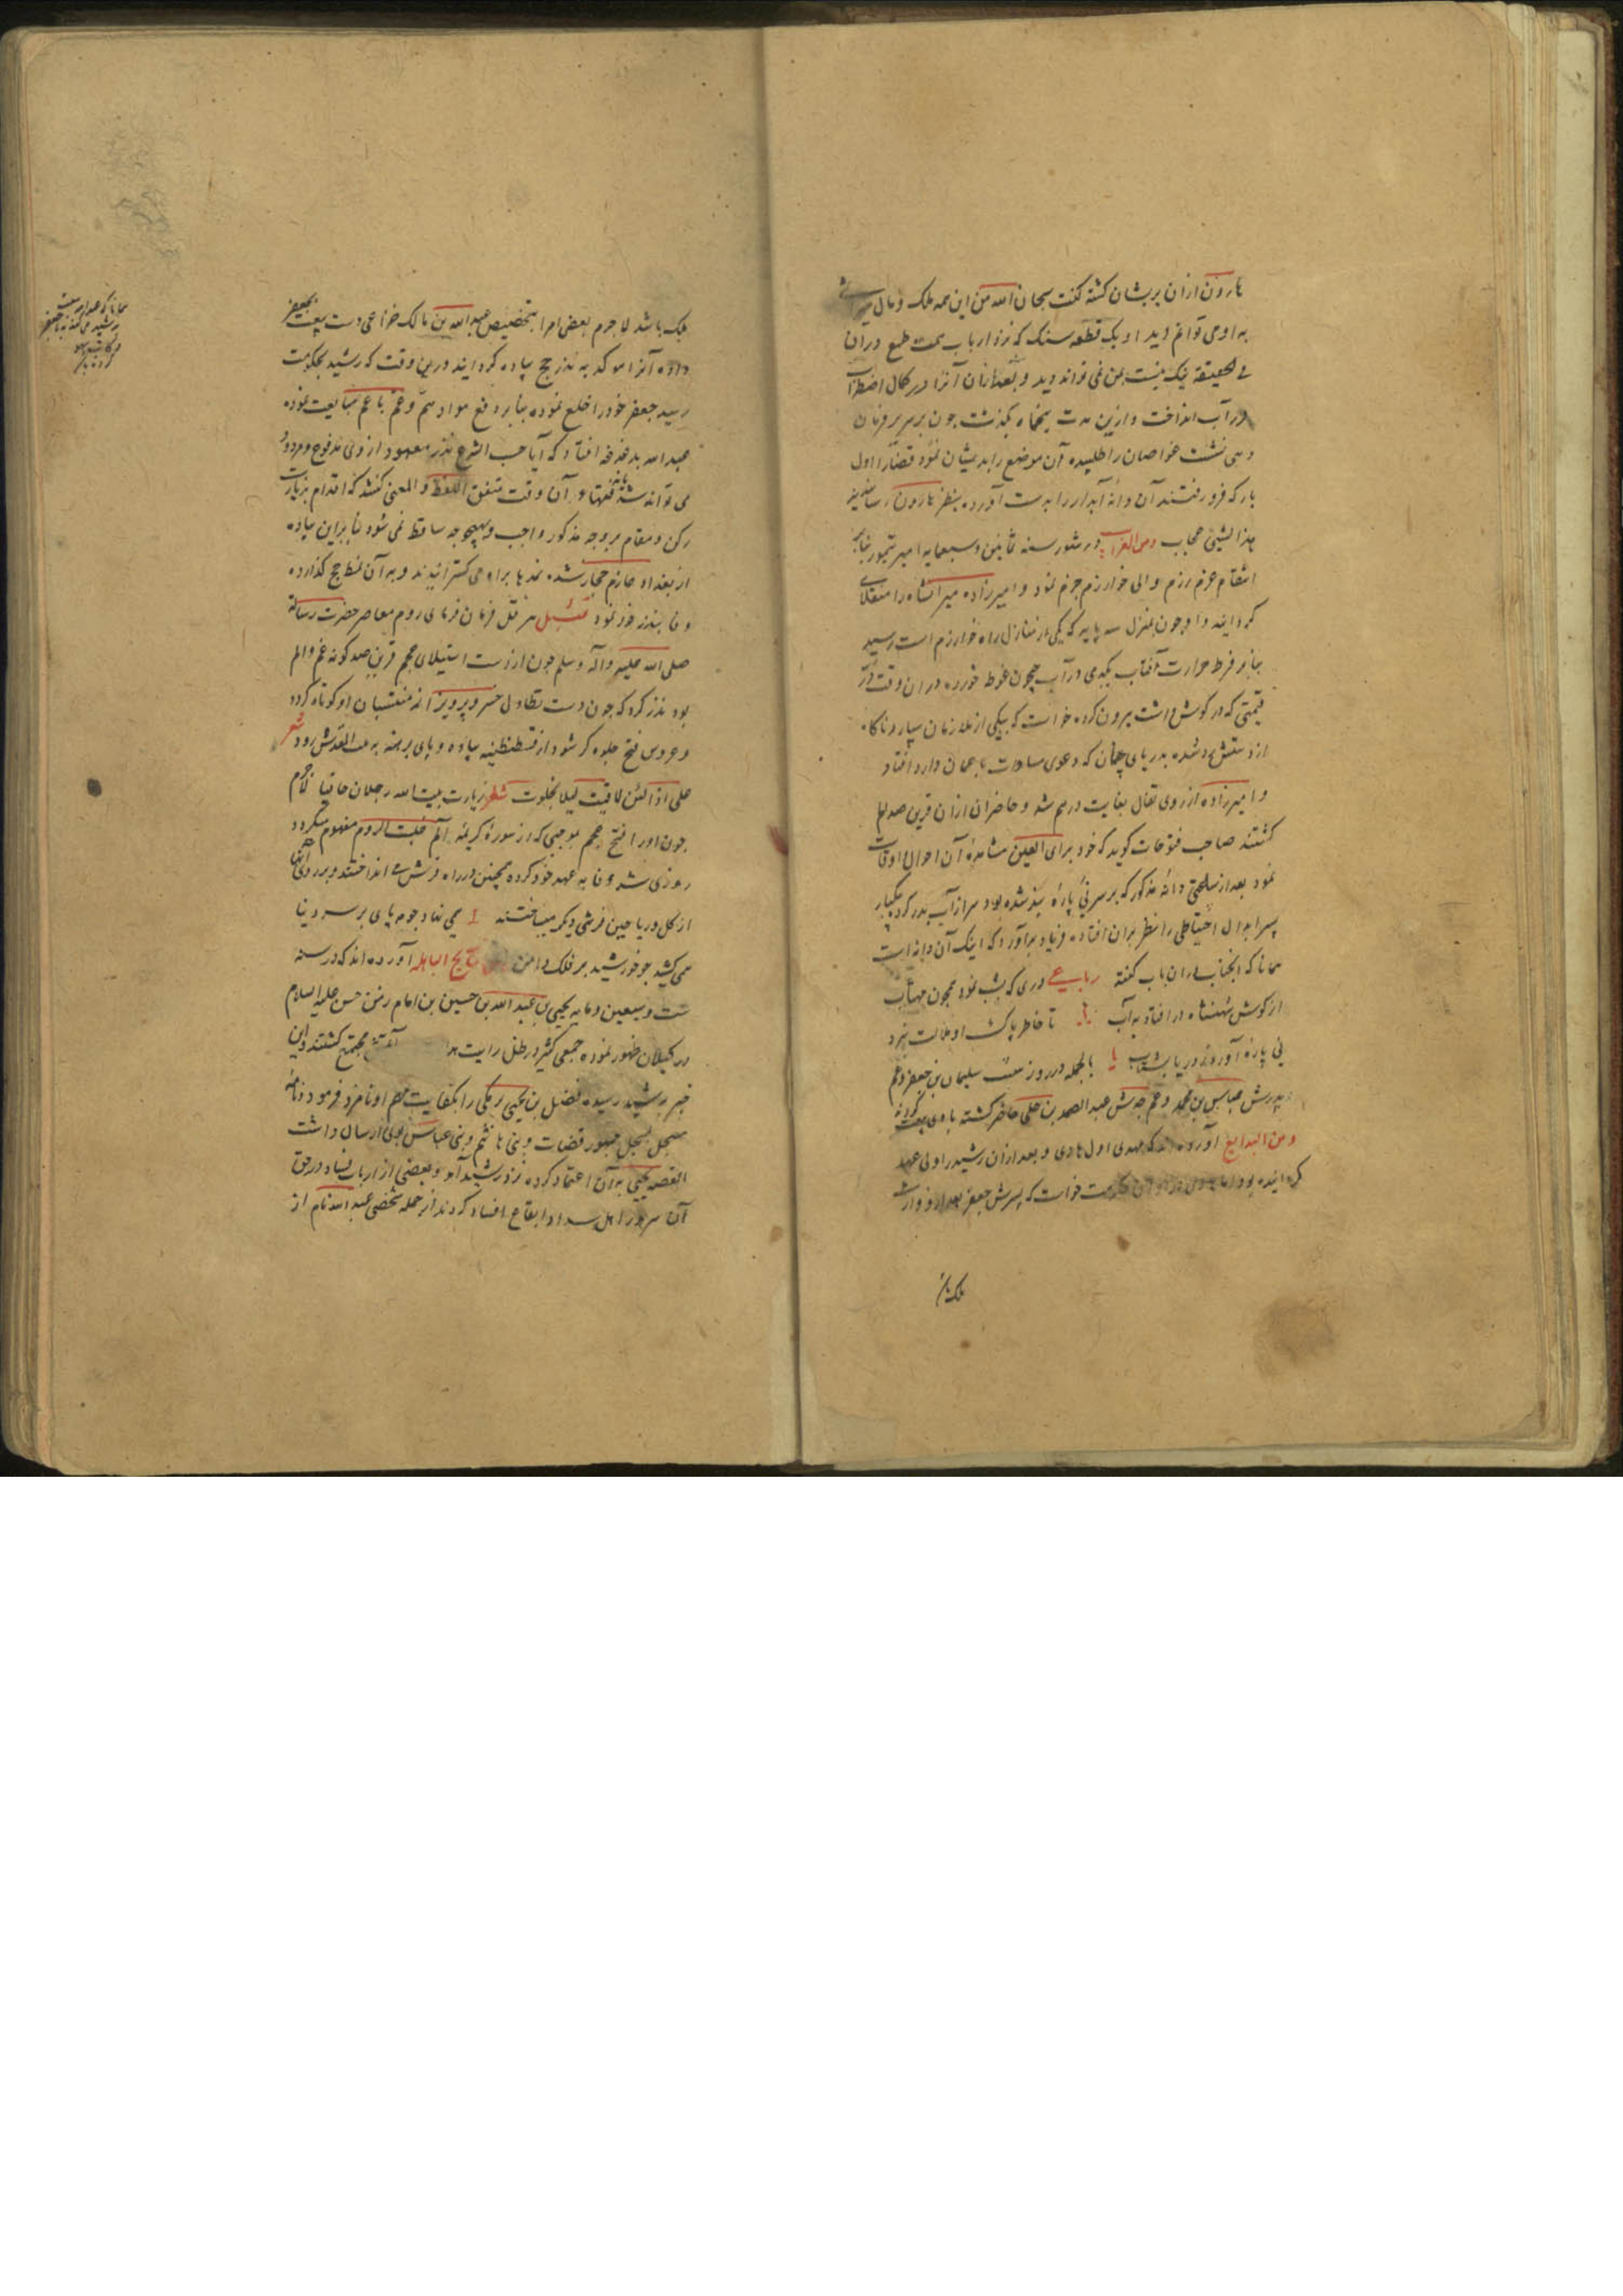 هارون ازان پریشان کشته کفت سبحان الله من این همه ملک و مال میراثی
به او می توانم دید او یک قطعه سنک که نزد ارباب همت طمع دران
فی الحقیقه نیک نیست بمن نمی تواند دید و بعد ازان آنرا در کمال اضطراب
در آب انداخت و ازین مدت پنجماه بکذشت چون بر سریر فرمان
دهی نشست غواصان را طلبیده آن موضع را بدیشان نمود قضا را اول
بار که فرو رفتند آن دانه آبدار را بدست آورده بنظر هارون رسانیدند
هذا لشیئ عجاب ومن الغرایب در شهور سنه ثمانین و سبعمایه امیر تیمور بنابر
انتقام عزم رزم والی خوارزم جزم نمود و امیرزاده میرانشاه را منقلای
کردانید و او چون بمنزل سه پایه که یکی از منازل راه خوارزم است رسید
بنابر فرط حرارت آفتاب یکدمی در آب جیحون غوطه خورده در ان وقت در
قیمتی که در کوش داشت بیرون کرده خواست که بیکی از ملازمان سپارد ناکاه
از دستش رد شده بدریای جیحان که دعوی مساوات با عمان دارد افتاد
و امیرزاده از روی تفال بغایت درهم شد و حاضران ازان قرین صد الم
کشتند صاحب فتوحات کوید که خود برای العین مشاهدهٔ آن احوال اوقات
نمود بعد از سلختی دانه مذکور که بر سر نی پارهٔ بند شده بود سر از آب بدر کرد یکبار
پسر ابدال احتیاطی را نظر بران افتاده فریاد برآورد که اینک آن دانه است
همانا که انجناب دران باب کفته رباعی دری که بشب نمود همچون مهتاب
از کوش شهنشاه در افتاد به آب تا خاطر پاکش او ملالت نبرد
نی پارهٔ آورد ز دریا بشتاب بالجمله در روز بیعت سلیمان بن جعفر و عم
پدرش عباس بن محمد و عم جدش عبد الصمد بن علی حاضر کشته با وی بیعت کردند
ومن البدایع آورده اند که مهدی اول هادی و بعد ازان رشید را ولی عهد
کردانیده بود اما هادی در اوان حکومت خواست که پسرش جعفر بعد از او وارث
ملک باشد
ملک باشد لا جرم بعض امرا بتخصیص عبد الله بن مالک خزاعی دست بیعت بجعفر
داده آنرا موکد به نذر حج پیاده کردانیدند درین وقت که رشید بحکومت
رسید جعفر خود را خلع نموده بنابر دفع مواد هم و غم با عم مبایعت نموده
عبد الله بدغدغه افتاد که آیا حسب الشرع نذر معهود از وی مدفوع و مردود
می تواند شد یا نه فقهاء آن وقت متفق اللفظ و المعنی کفتند که اقدام بزیارت
رکن و مقام بر وجه مذکور واجب و بهیچ وجه ساقط نمی شود بنابراین پیاده
از بغداد عازم حجاز شده نمدها براه می کسترانیدند و به آن نمط حج کذارده
وفا بنذر خود نمود تمثیل هرقل فرمان فرمای روم معاصر حضرت رسالة
صلی الله علیه و آله و سلم چون از دست استیلای عجم قرین صد کونه غم و الم
بود نذر کرد که چون دست تطاول خسرو پرویز از منتسبان او کوتاه کردد
و عروس فتح جلوه کر شود از قسطنطنیه پیاده و پای برهنه به بیت المقدس رود شعر
علی اذا لئن لاقیت لیلی بخلوت شعر زیارت بیت الله رجلان حافیا لاجرم
چون او را فتح عجم بموجبی که از سورهٔ کریمهٔ الم غلبت الروم مفهوم میکردد
روزی شد وفا به عهد خود کرده همچنین در راه فرش می انداختند و بر روی آنها
از کل و ریاحین فرشی دیکر میساختند می نهاد جوم پای بر سر دنیا
می کشید چو خورشید بر فلک دامن نتایج الباطل آورده اند که در سنه
ست و سبعین و مایه یحیی بن عبد الله بن حسین بن امام رضی حسن علیه السلام
در کیلان ظهور نموده جمعی کثیر در ظل رایت مجتمع کشتند و این
خبر برشید رسیده فضل بن یحیی برمکی را بکفایت مهم او نامزد فرمود و نامهٔ
مسجل بسجل جمهور قضات و بنی هاشم و بنی عباس بوی ارسال داشت
القصه یحیی به آن اعتماد کرده نزد رشید آمد و بعضی از ارباب فساد در حق
آن سرور اهل سداد ایقاع افساد کردند از جمله شخصی عبد الله نام از